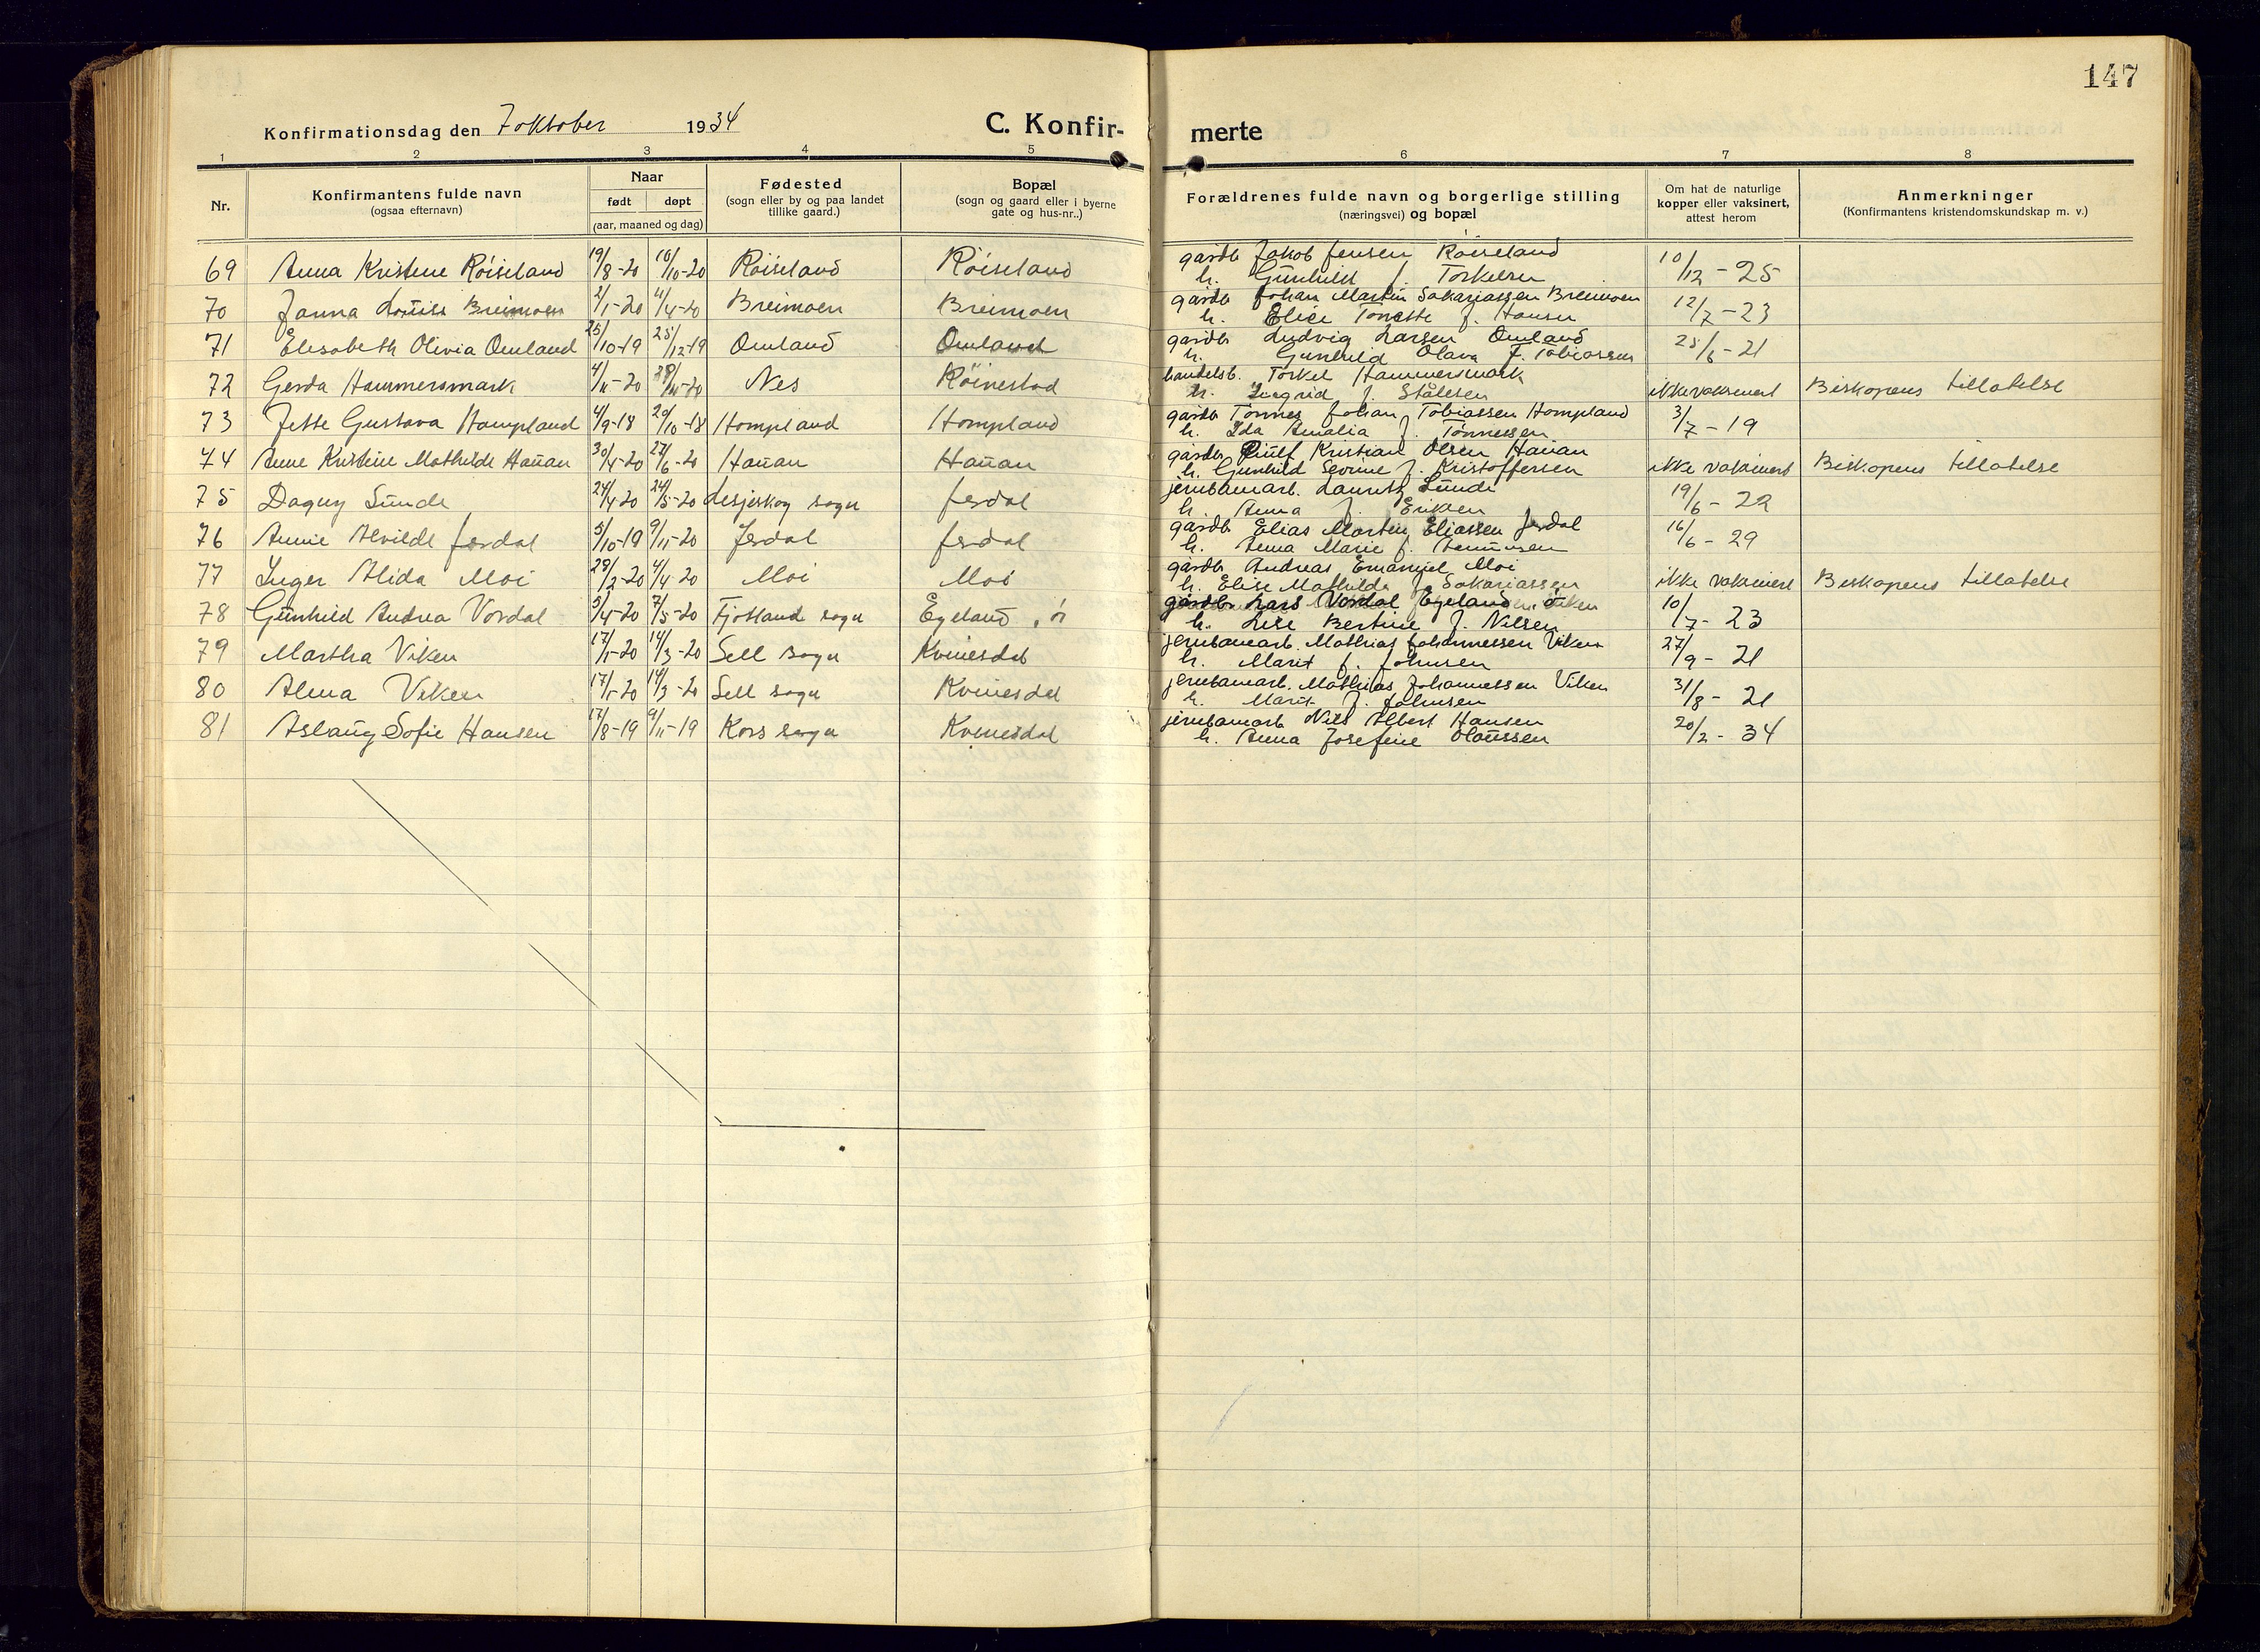 147
Konfirmationsdag den 7 oktober 1934
C. Konfir-
merte
1 2 3 4 5 6 7 8
Nr. Konfirmantens fulde navn (ogsaa efternavn) Naar født døpt (aar, maaned og dag) Fødested (sogn eller by og paa landet tillike gaard.) Bopæl (sogn og gaard eller i byerne gate og hus-nr..) Forældrenes fulde navn og borgerlige stilling (næringsvei) og bopæl Om hat de naturlige kopper eller vaksinert, attest herom Anmerkninger (Konfirmantens kristendomskundskap m. v.)
69 Anna Kristine Röiseland 19/8-20 10/10-20 Röiseland Röiseland gårdb Jakob Jensen Röiseland 10/12-25
h. Gunhild f. Torkelsen
70 Janna Louise Breimoen 2/1-20 4/4-20 Breimoen Breimoen gårdb Johan Martin Sakariassen Breimoen 12/7-23
h. Elise Tonette f. Hansen
71 Elisabeth Olivia Omland 25/10-19 25/12-19 Omland Omland gårdb Ludvig Larsen Omland 25/6-21
h. Gunhild Olava f. Tobiassen
72 Gerda Hammersmark 4/11-20 Nes Röinestad handelsb. Torkel Hammersmark
h. Ingrid f. Stålesen ikke vaksinert Biskopens tillatelse
73 Jette Gustava Hompland 4/9-18 20/10-18 Hompland Hompland gårdb Tönnes Johan Tobiassen Hompland 3/7-19
h. Ida Amalia f. Tönnessen
74 Anne Kristine Mathilde Hauan 30/4-20 27/6-20 Hauan Hauan gårdbr Kristian Olsen Hauan
h. Gunhild Serine f. Kristoffersen ikke vaksinert Biskopens tillatelse
75 Dagny Sunde 24/4-20 24/5-20 Lesjeskog sogn Jerdal jernbanearb. Lauritz Sunde 19/6-22
h. Anna f. Eriksen
76 Annie Alvilde Jerdal 5/10-19 9/11-20 Jerdal Jerdal gårdb Elias Martin Eliassen Jerdal 16/6-29
h. Anna Marie f.
77 Inger Alida Moi 28/2-20 4/4-20 Moi Moi gårdb Andreas Emanuel Moi
h. Elise Mathilde f. Sakariassen ikke vaksinert Biskopens tillatelse
78 Gunhild Andrea Vordal 5/4-20 7/5-20 Fjotland sogn Egeland, ö gårdb Lars Vordal Egeland 10/7-23
h. Lise Bertine f. Nilsen
79 Martha Viken 17/1-20 14/3-20 Sell sogn Kvinesdal jernbanearb. Mathias Johannessen Viken 27/9-21
h. Marit f. Johnsen
80 Alma Viken 17/1-20 14/3-20 Sell sogn Kvinesdal jernbanearb. Mathias Johannessen Viken 31/8-21
h. Marit f. Johnsen
81 Aslaug Sofie Hansen 17/8-19 9/11-19 Kors sogn Kvinesdal jernbanearb Nils Albert Hansen 20/2-34
h. Anna Josefine Olaussen